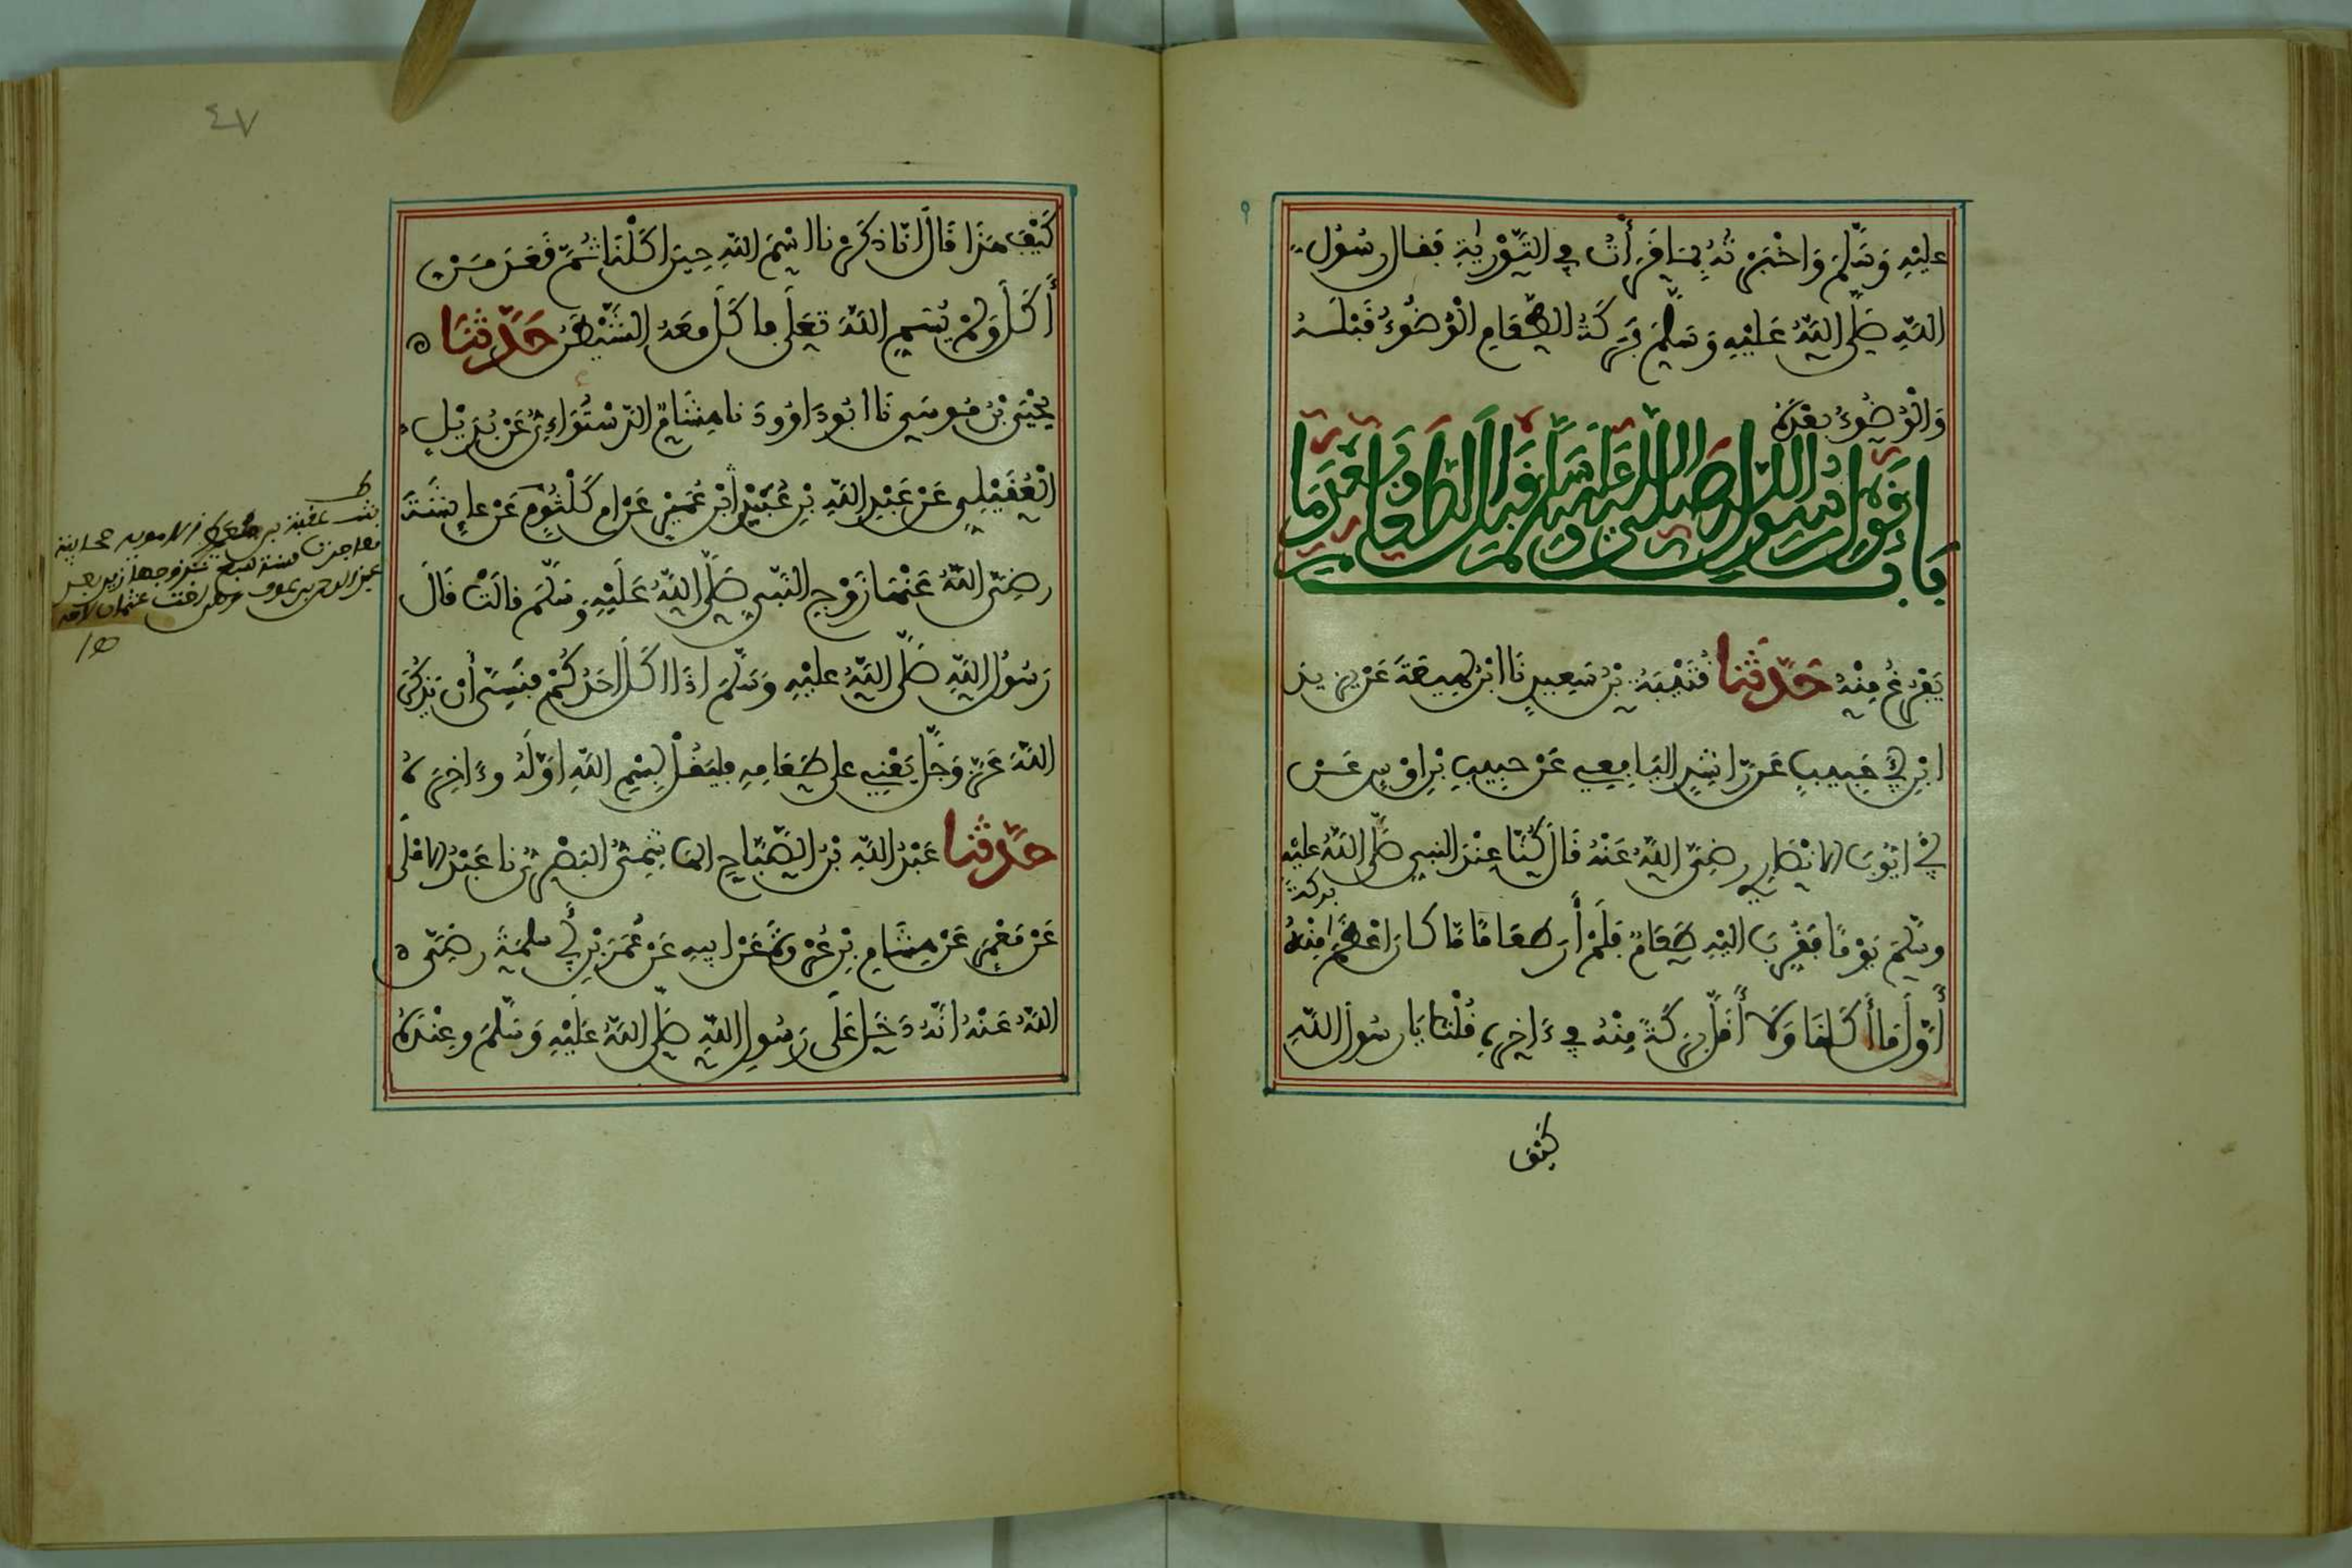 عليْهِ وَسَلَّمَ وَاخْبَرْتُهُ بِمَا قَرَأْتُ فِي التَّوْرٰيةِ فقال رسُولُ
اللَّهِ صَلَّى اللَّهُ عَلَيْهِ وَسَلَّمَ بَرَكَةُ الطَّعَامِ الْوُضُوءُ قَبْلَهُ
وَالْوُضُوءُ بعْدَهُ
بَابُ قَوْلِ رَسُولِ اللّهِ صَلَّى اللَّهُ عَلَيْهِ وَسَلَّمَ قَبْلَ الطَّعَامِ وَبَعْدَمَا
يَفْرُغُ مِنْهُ حَدَّثَنَا قُتَيْبَةُ بْنُ سَعِيدٍ نَا ابْنُ لَهِيعَةَ عَنْ يزيدَ
ابْنِ أَبِي حَبِيبٍ عَنْ رَّاشِدٍ اليَافِعِي عَنْ حبِيبِ بْنِ اوْسٍ عَنْ
أَبِي ايُّوبَ الانْصَارِي رضِيَ اللَّهُ عَنْهُ قَالَ كُنَّا عِنْدَ النبِي صَلَّى اللَّهُ عليْهِ
وسَلَّمَ يَوْمًا فَقُرِّبَ اليْهِ طَعَامٌ فَلَمْ أَرَ طعَامًا مَّا كانَ اعْظَمَ بركةً مِنْهُ
أَوَّلَ مَا أَكَلْنَا وَلَا أَقَلَّ بَرَكَةً مِنْهُ فِي ءَاخِرِهِ فقُلْنَا يَا رسُولَ اللَّهِ
كَيْفَ
٤٧
كَيْفَ هَذَا قَالَ انَّا ذكَرْنا اسْمَ اللَّهِ حِينَ اكَلْنَا ثُمَّ قَعَدَ مَنْ
أَكَلَ وَلَمْ يُسَمِّ اللَّهَ تَعَلَى فاكَلَ معَهُ الشَّيْطَنُ حَدَّثَنَا
يَحْيَى بْنُ مُوسَى نَا ابُو دَاوُودَ نا هِشَامٌ الدَّسْتُوَاءِيُّ عَنْ بُدَيْلٍ
الْعُقَيْلِي عَنْ عَبْدِ اللَّهِ بْنِ عُبَيْدِ ابْنِ عُمَيْرٍ عَنْ امِّ كَلْثُومٍ عَنْ عاءِشَةَ
رضِيَ اللَّهُ عَنْهَا زَوْجِ النَّبِي صَلَّى اللَّهُ عَلَيْهِ وَسَلَّمَ قالَتْ قَالَ
رَسُولُ اللَّهِ صَلَّى اللَّهُ عليْهِ وَسَلَّمَ اذَا اكَلَ احَدُكُمْ فنَسِيَ أنْ يَذْكُرَ
اللَّهَ عَزَّ وَجَلَّ يَعْنِي على طَعَامِهِ فليَقُلْ بِسْمِ اللَّهِ اوَّلَهُ وءَاخِرَهُ
حَدَّثَنا عَبْدُ اللَّهِ بْنُ الصَّبَّاحِ الهَاشِمِيُّ البَصْرِيُّ نا عَبْدُ الاعْلَى
عَنْ مَعْمَرٍ عَنْ هِشَامِ بْنِ عُرْوَةَ عَنْ ابيهِ عَنْ عُمَرَ بْنِ أَبِي سلمَةَ رضِيَ
اللَّهُ عَنْهُ انَّهُ دَخَلَ عَلَى رَسُولِ اللَّهِ صَلَّى اللَّهُ عَلَيْهِ وَسَلَّمَ وعِنْدَهُ
بنت عقبة بن الاموية صحابية
هاجرت سنة سبع تزوجها زيد بعد
عبد الرحمن بن عوف اخت عثمان لامه